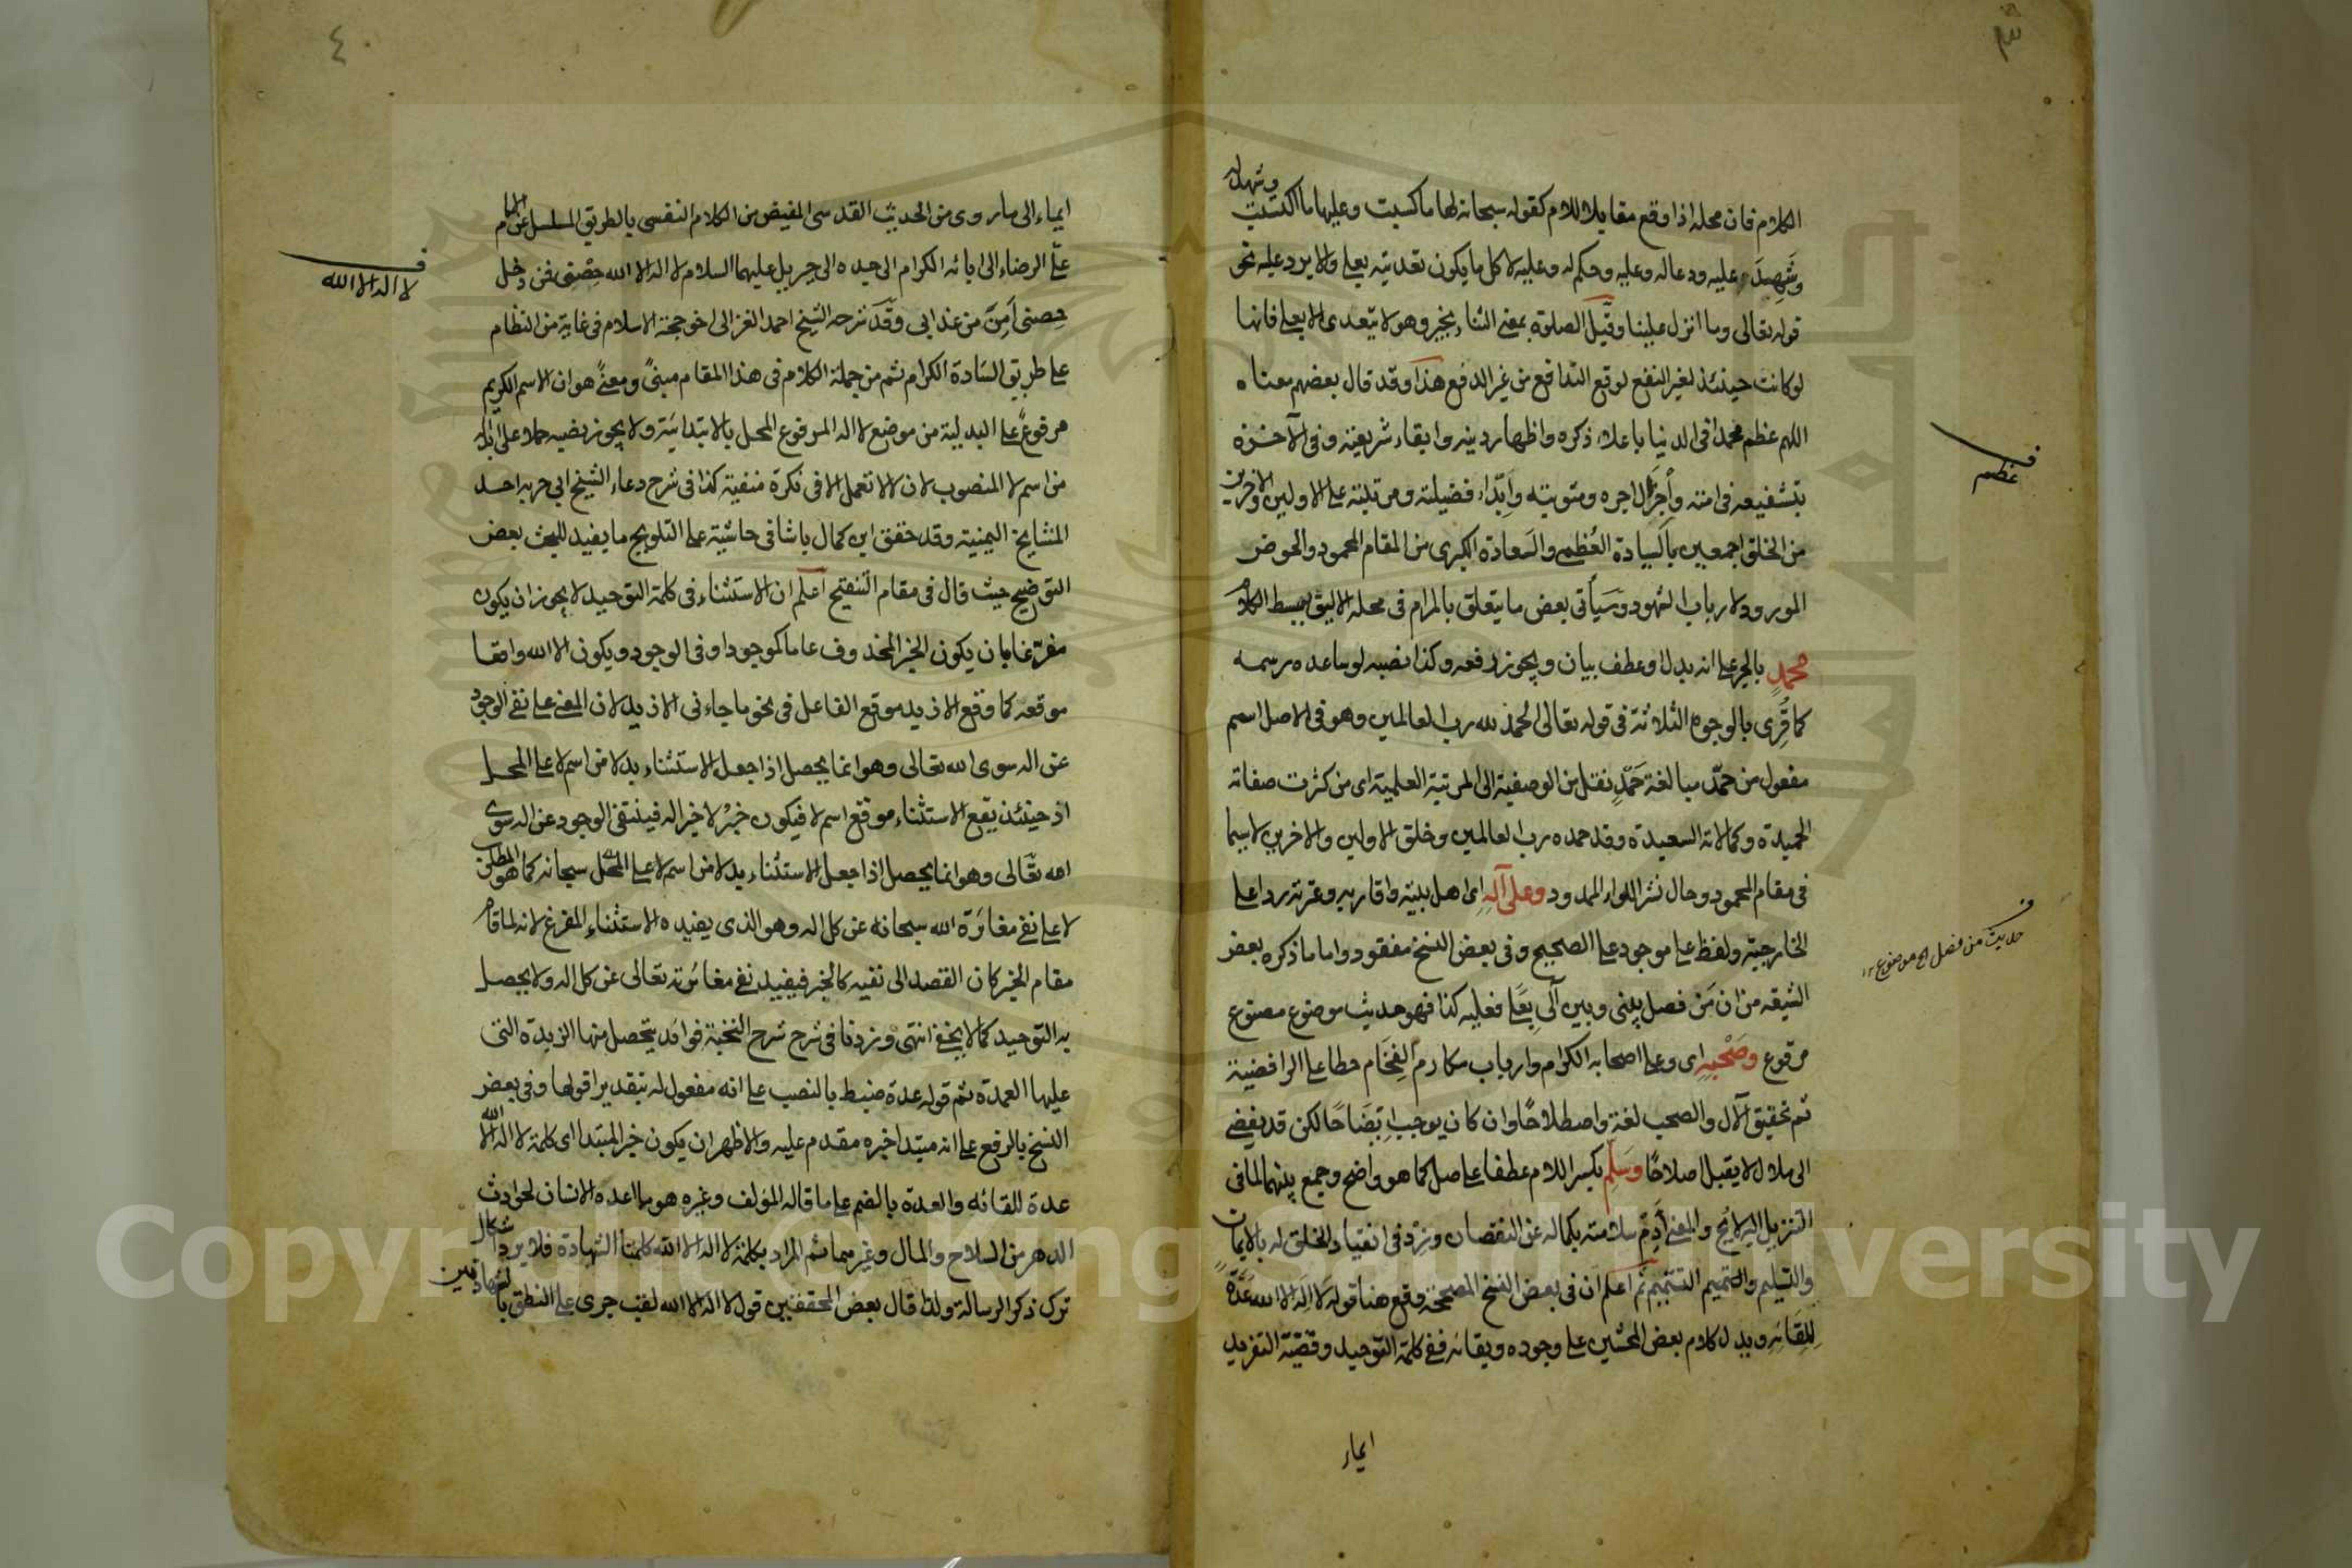 ٣
الكلام فان محله اذا وقع مقابلا للام كقوله سبحانه لها ما كسبت وعليها ما اكتسبت وشهد له
وشهد عليه ودعا له وعليه وحكم له وعليه لا كل ما يكون تعديته بعلى والا يرد عليه نحو
قوله تعالى وما انزل علينا وقيل الصلوة بمعنى الثناء بخير وهو لا يتعدى الا بعلى فانها
لو كانت حينئذ لغير النفع لوقع التدافع من غير الدفع هذا وقد قال بعضهم معناه
اللهم عظم محمدا فى الدنيا باعلاء ذكره واظهار دينه وابقاء شريعته وفى الآخرة
بتشفيعه فى امته واجزال اجره ومثوبته وابداء فضيلته ومرتبته على الاولين والاخرين
من الخلق اجمعين بالسيادة العظمى والسعادة الكبرى من المقام المحمود والحوض
المورود لارباب الشهود وسيأتى بعض ما يتعلق بالمرام فى محله الاليق ببسط الكلام
محمد بالجر على انه بدل او عطف بيان ويجوز رفعه وكذا نصبه لو ساعده رسمه
كما قرى بالوجوه الثلاثة فى قوله تعالى الحمد لله رب العالمين وهو فى الاصل اسم
مفعول من حمّد مبالغة حمد نقل من الوصفية الى المرتبة العلمية اى من كثرت صفاته
الحميدة وكمالاته السعيدة وقد حمده رب العالمين وخلق الاولين والاخرين لاسيما
فى مقام المحمود وحال نشر اللواء الممدود وعلى آله اى اهل بيته واقاربه وعترته ردا على
الخارجية ولفظ على موجود على الصحيح وفى بعض النسخ مفقود واما ما ذكره بعض
الشيعة من ان من فصل بينى وبين آلى بعلى فعليه كذا فهو حديث موضوع مصنوع
مرقوع وصحبه اى وعلى اصحابه الكرام وارباب مكارم الفخام حطا على الرافضية
ثم تحقيق الآل والصحب لغة واصطلاحا وان كان يوجب اتضاحا لكن قد يفضى
الى ملال لا يقبل اصلاحا وسلم بكسر اللام عطفا على صل كما هو واضح وجمع بينهما لما فى
التنزيل اليه لائح والمعنى أدم سلامته بكماله عن النقصان وزد فى انقياد الخلق له بالايمان
والتسليم والتعميم التتميم ثم اعلم ان فى بعض النسخ المصححة وقع هنا قوله لا اله الا الله عدة
للقائه ويدل كلام بعض المحشين على وجوده وبقائه ففى كلمة التوحيد وقضية التفريد
ايماء
ف
عظم
ف
حديث من فصل الخ موضوع ١٢
٤
ايماء الى ما روى من الحديث القدسى المفيض من الكلام النفسى بالطريق المسلسل عن الامام
على الرضاء الى ابائه الكرام الى جده الى جبريل عليهما السلام لا اله الا الله حصنى فمن دخل
حصنى أمن من عذابى وقد شرحه الشيخ احمد الغزالى اخو حجة الاسلام فى غاية من النظام
على طريق السادة الكرام ثم من جملة الكلام فى هذا المقام مبنى ومعنى هو ان الاسم الكريم
مرفوع على البدلية من موضع لا اله المرفوع المحل بالابتدائية ولا يجوز نصبه حملا على ابداله
من اسم لا المنصوب لان لا لا تعمل الا فى نكرة منفية كذا فى شرح دعاء الشيخ ابى حربه احد
المشايخ اليمنية وقد حقق ابن كمال باشا فى حاشية على التلويح ما يفيد للبحث بعض
التوضيح حيث قال فى مقام التنقيح اعلم ان الاستثناء فى كلمة التوحيد لا يجوز ان يكون
مفرغا بان يكون الخبر المحذوف عاما كموجود او فى الوجود ويكون الا الله واقعا
موقعه كما وقع الا زيد موقع الفاعل فى نحو ما جاءنى الا زيد لان المعنى على نفى الوجود
عن اله سوى الله تعالى وهو انما يحصل اذا جعل الاستثناء بدلا من اسم لا على المحل
اذ حينئذ يقع الاستثناء موقع اسم لا فيكون خبر لا خبرا له فينتفى الوجود عن اله سوى
الله تعالى وهو انما يحصل اذا جعل الاستثناء بدلا من اسم لا على المحل سبحانه كما هو المطلوب
لا على نفى مغايرة الله سبحانه عن كل اله وهو الذى يفيده الاستثناء المفرغ لانه لما قام
مقام الخبر كان القصد الى نفيه كالخبر فيفيد نفى مغايرته تعالى عن كل اله ولا يحصل
به التوحيد كما لا يخفى انتهى وزدنا فى شرح شرح النخبة فوائد يتحصل منها الزبدة التى
عليها العمدة ثم قوله عدة ضبط بالنصب على انه مفعول له بتقدير اقولها وفى بعض
النسخ بالرفع على انه مبتدا خبره مقدم عليه والاظهر ان يكون خبر المبتدا اى كلمة لا اله الا الله
عدة للقائه والعدة بالضم على ما قاله المؤلف وغيره هو ما اعده الانسان لحوادث
الدهر من السلاح والمال وغيرهما ثم المراد بكلمة لا اله الا الله كلمتا الشهادة فلا يرد اشكال
ترك ذكر الرسالة ولذا قال بعض المحققين قول لا اله الا الله لقب جرى على النطق بالشهادتين
ف
لا اله الا الله
Copyright © King Saud University